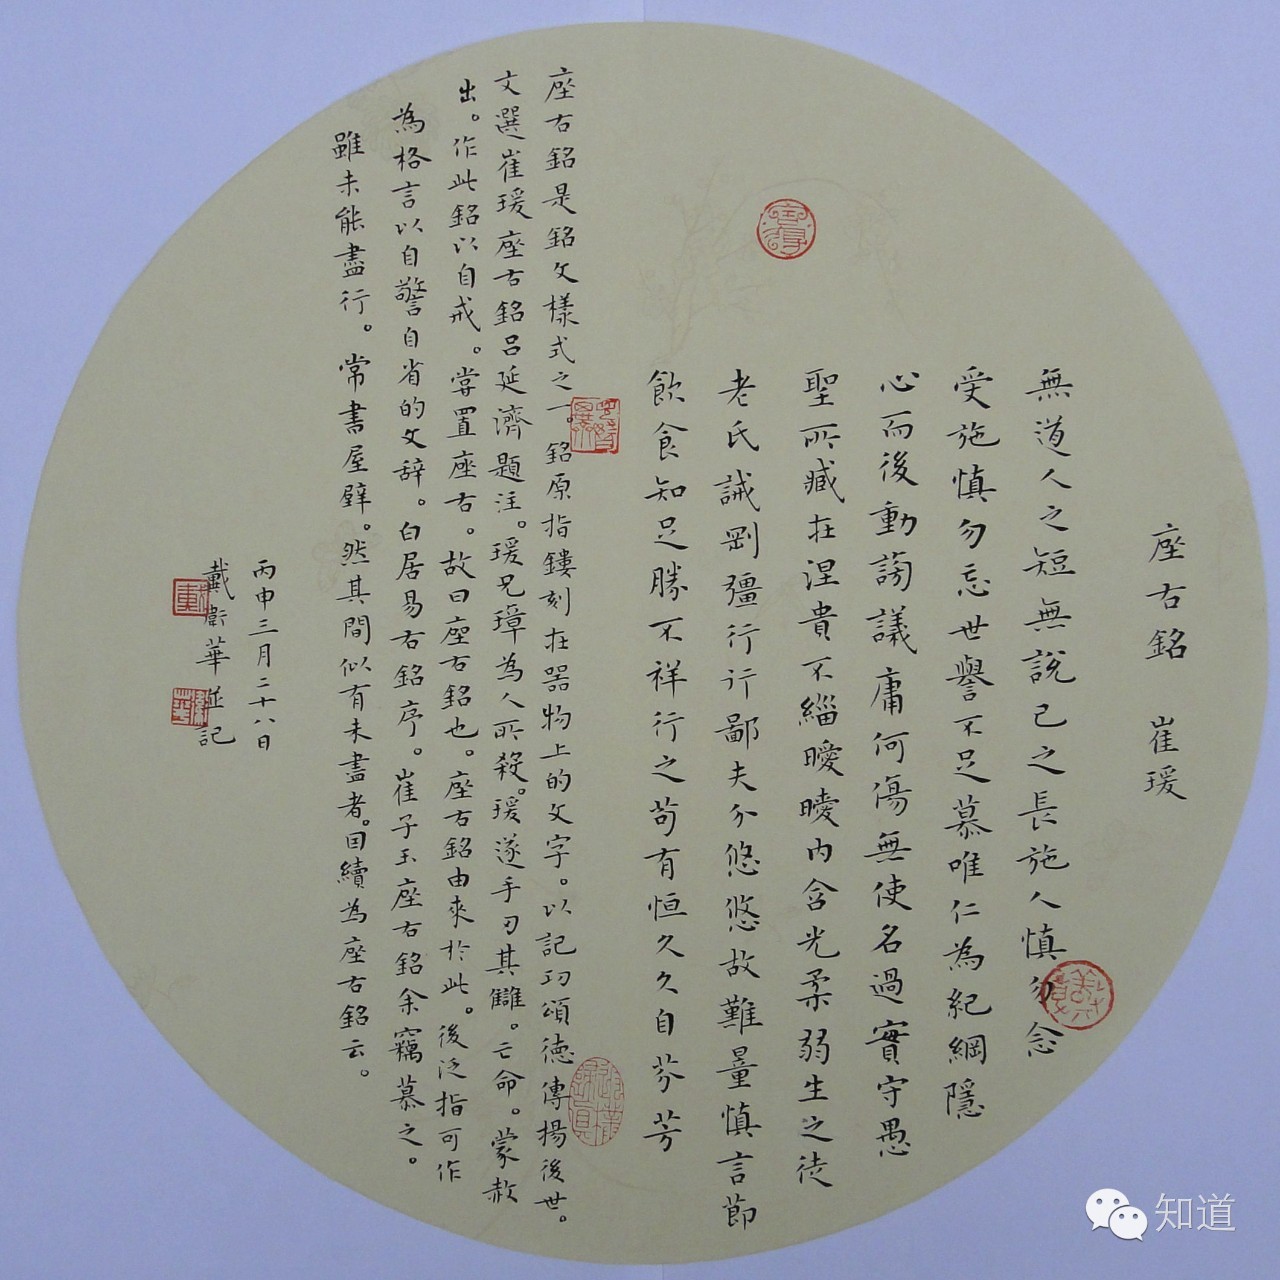 座右銘 崔瑗
無道人之短無說己之長施人慎勿念
受施慎勿忘世譽不足慕唯仁為紀綱隱
心而後動謗議庸何傷無使名過實守愚
聖所臧在涅貴不緇曖曖內含光柔弱生之徒
老氏誡剛彊行行鄙夫介悠悠故難量慎言節
飲食知足勝不祥行之苟有恒久久自芬芳
座右銘是銘文樣式之一。銘原指鏤刻在器物上的文字。以記功頌德傳揚後世。
文選崔瑗座右銘呂延濟題注。瑗兄璋為人所殺。瑗遂手刃其讎。亡命。蒙赦
出。作此銘以自戒。嘗置座右。故曰座右銘也。座右銘由來於此。後泛指可作
為格言以自警自省的文辞。白居易右銘序。崔子玉座右銘余竊慕之。
雖未能盡行。常書屋壁。然其間似有未盡者。因續為座右銘云。
丙申三月二十八日
戴衛華並記
知道